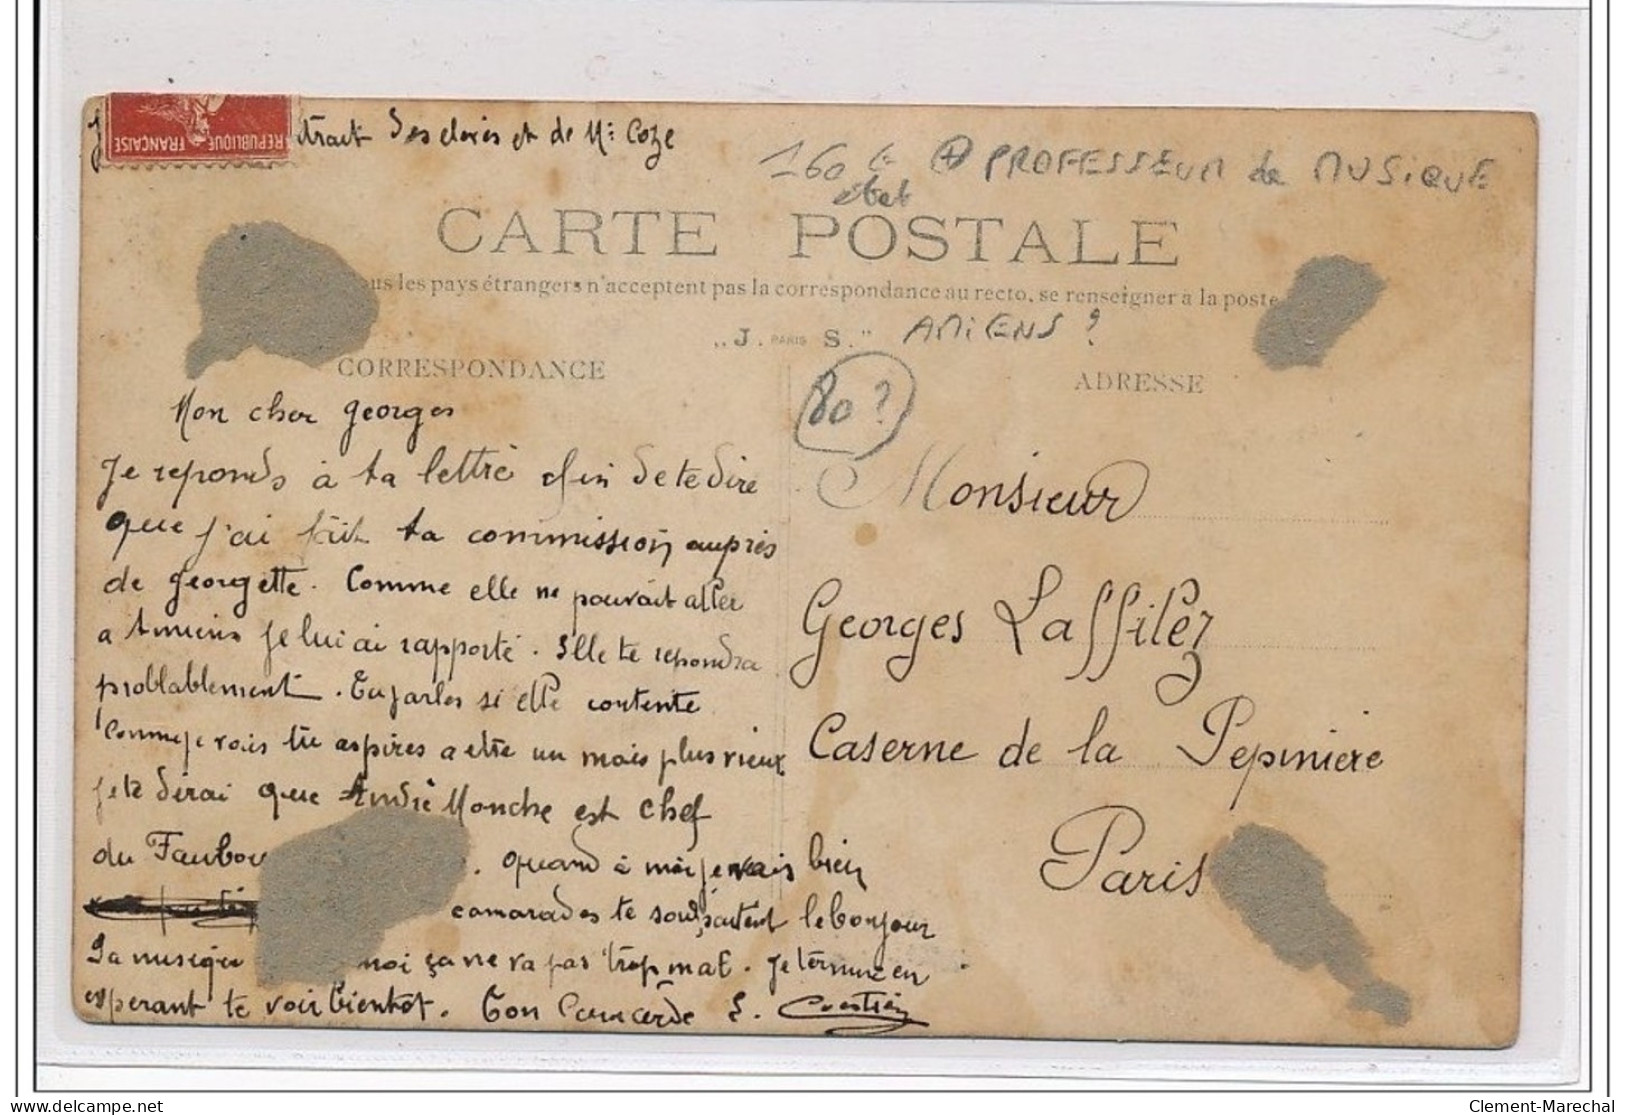 trait des elèves et de Mr Coze
160 € + PROFESSEUR de MUSIQUE
etat
REPUBLIQUE FRANÇAISE
CARTE POSTALE
us les pays étrangers n'acceptent pas la correspondance au recto, se renseigner a la poste
„J. PARIS S." AMIENS ?
CORRESPONDANCE
ADRESSE
80 ?
Mon cher Georges
Je reponds à ta lettre afin de te dire
que j'ai fait ta commission auprès
de Georgette. Comme elle ne pouvait aller
a Amiens je lui ai rapporté. Elle te repondra
problablement. Tu parles si elle contente
Comme je vois tu aspires a etre un mois plus vieux
je te dirai que André Monche est chef
du Faubou . quand à moi je vais bien
camarades te souhaitent le bonjour
La musique moi ça ne va pas trop mal. Je termine en
esperant te voir bientot. Ton Camarade
Monsieur
Georges Laffilez
Caserne de la Pepiniere
Paris
Clement-Marechal